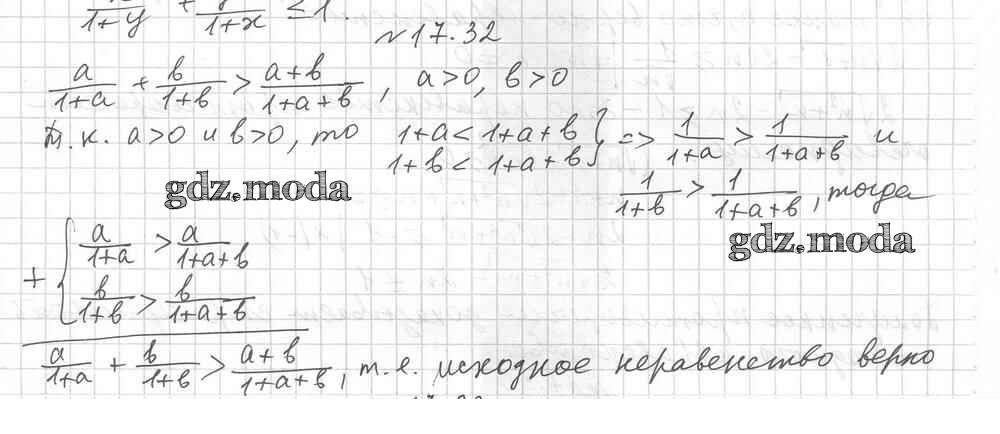 /(1+y) + /(1+x) ≤ 1.
№17.32
a/(1+a) + b/(1+b) > (a+b)/(1+a+b), a>0, b>0
т.к. a>0 и b>0, то 1+a < 1+a+b } => 1/(1+a) > 1/(1+a+b) и
1+b < 1+a+b
gdz.moda
1/(1+b) > 1/(1+a+b), тогда
gdz.moda
+ { a/(1+a) > a/(1+a+b)
b/(1+b) > b/(1+a+b)
a/(1+a) + b/(1+b) > (a+b)/(1+a+b), т.е. исходное неравенство верно